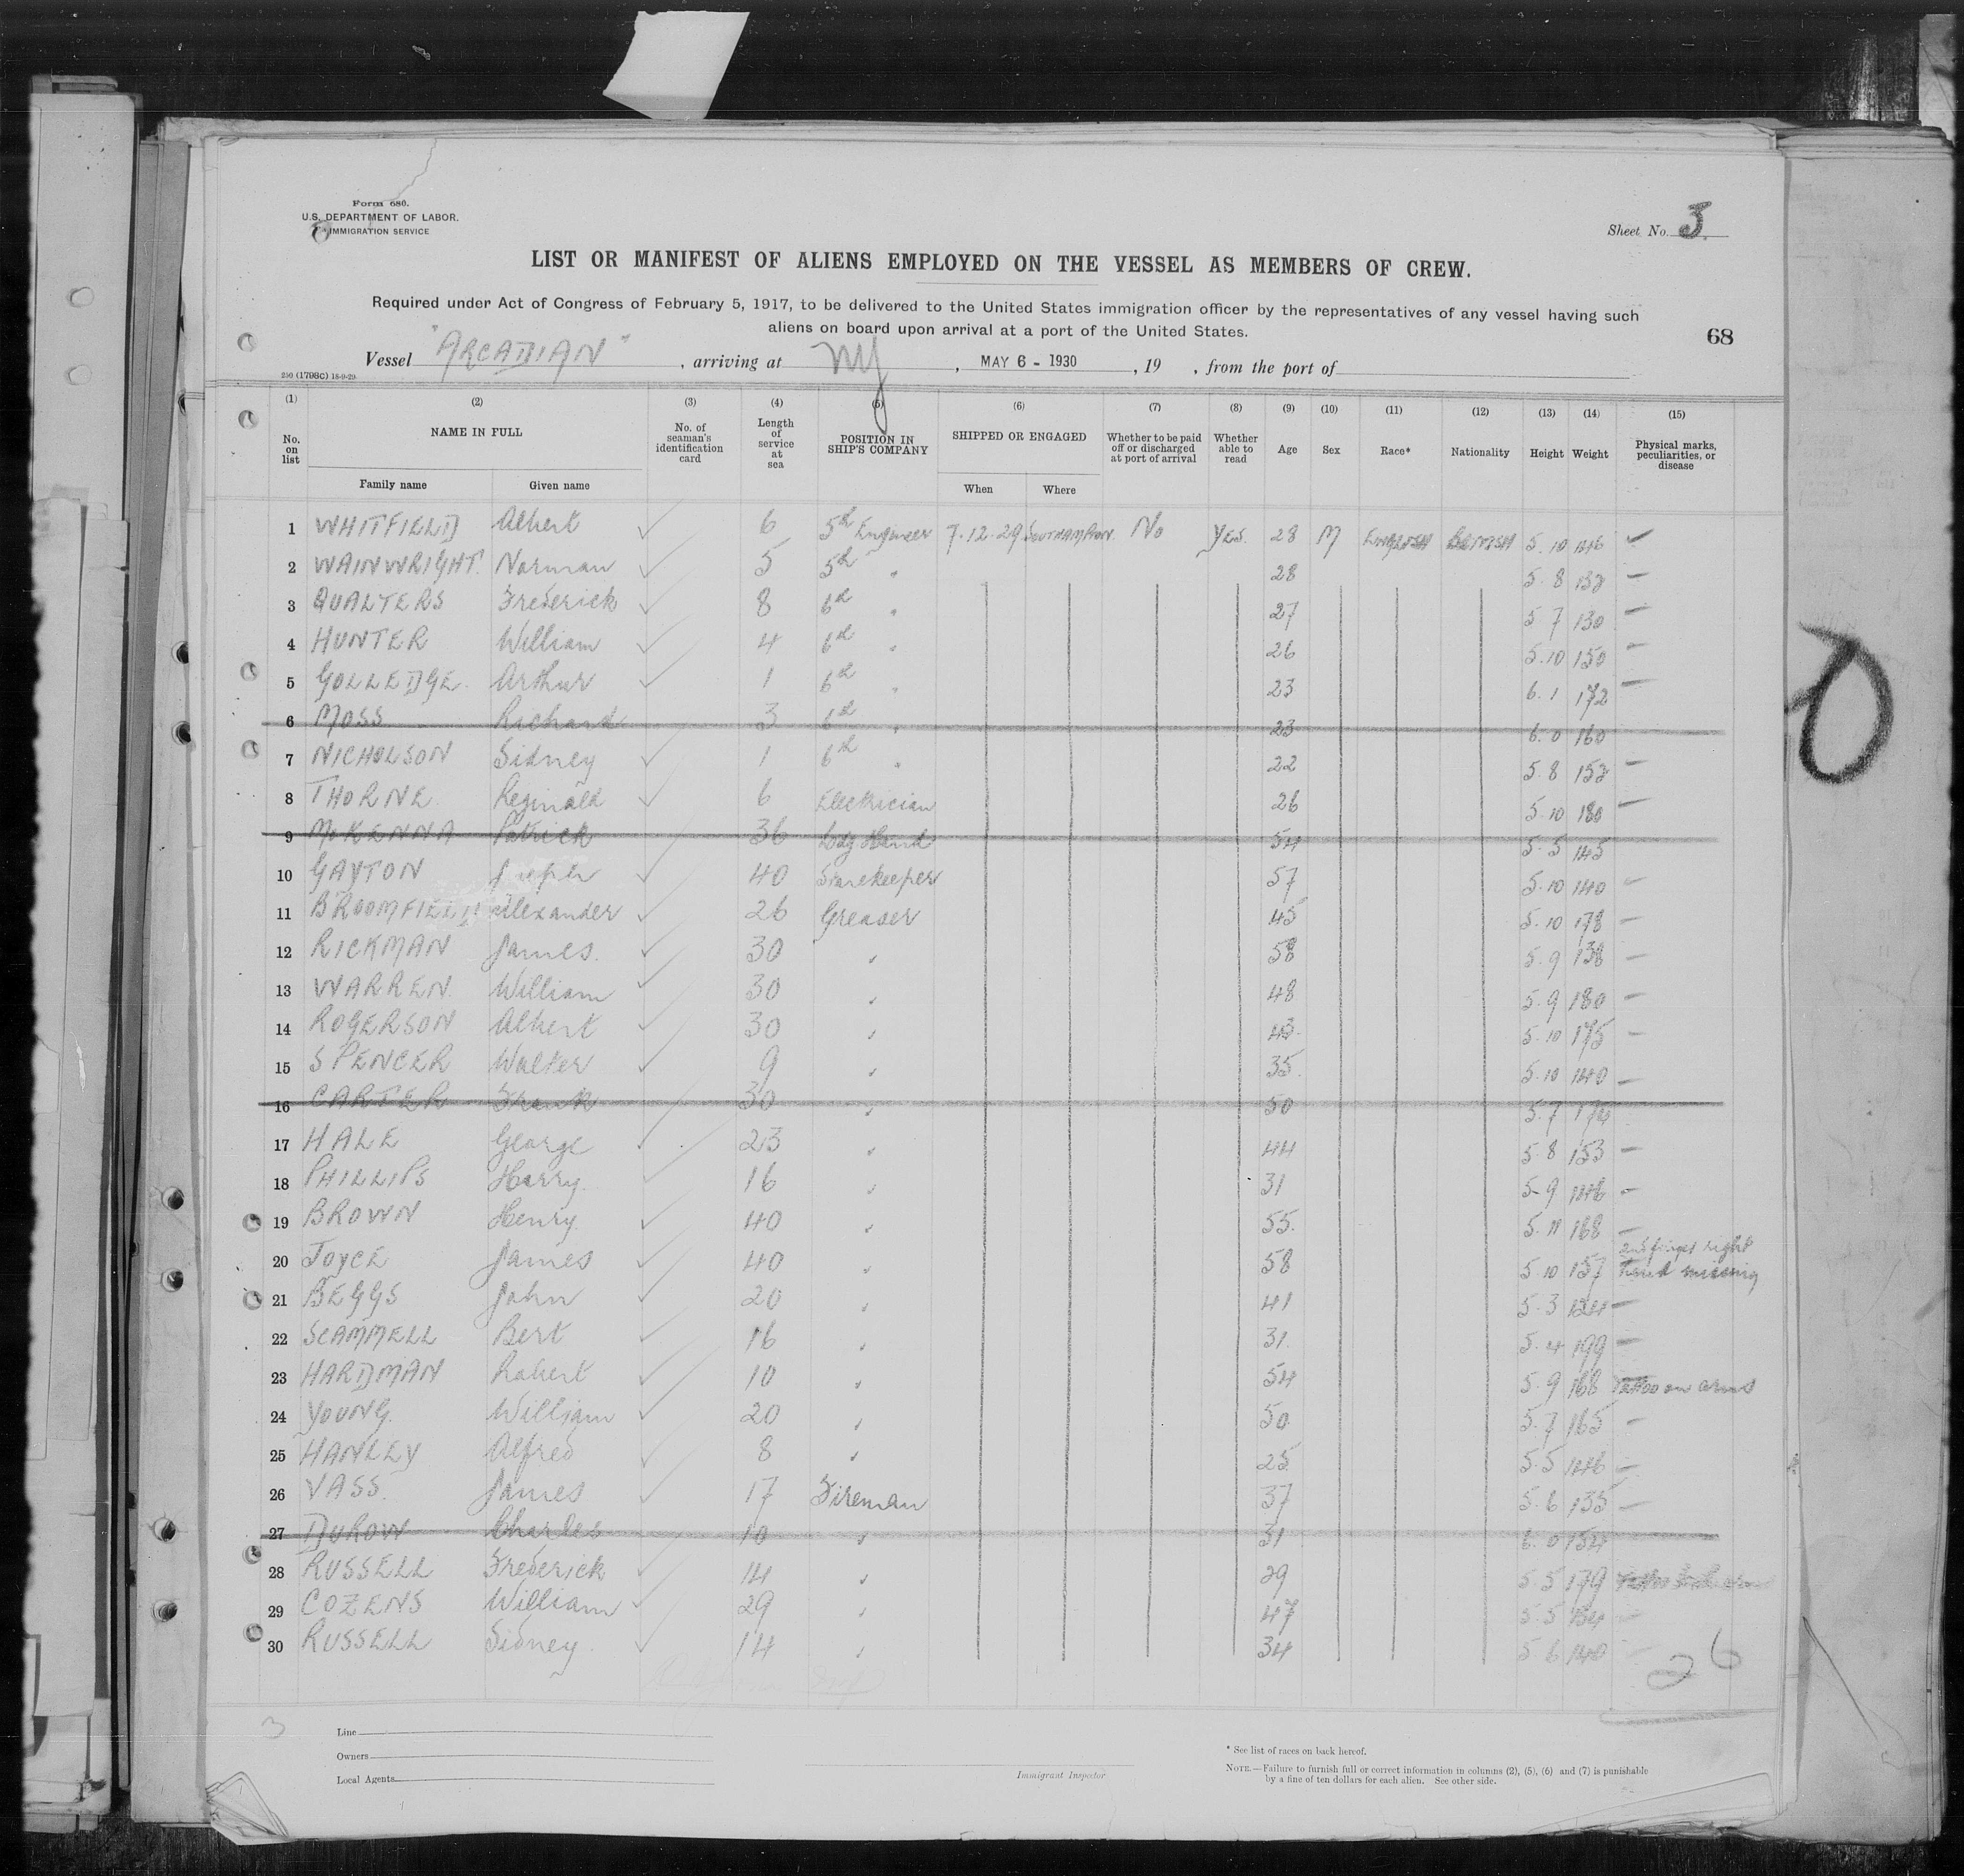 Form 686.
U.S. DEPARTMENT OF LABOR.
IMMIGRATION SERVICE
Sheet No. 3
LIST OR MANIFEST OF ALIENS EMPLOYED ON THE VESSEL AS MEMBERS OF CREW.
Required under Act of Congress of February 5, 1917, to be delivered to the United States immigration officer by the representatives of any vessel having such
aliens on board upon arrival at a port of the United States.
68
Vessel "ARCADIAN", arriving at NY, MAY 6 - 1930, 19 , from the port of
250 (1798C) 18-9-29.
(1) (2) (3) (4) (5) (6) (7) (8) (9) (10) (11) (12) (13) (14) (15)
No. on list NAME IN FULL No. of seaman's identification card Length of service at sea POSITION IN SHIP'S COMPANY SHIPPED OR ENGAGED Whether to be paid off or discharged at port of arrival Whether able to read Age Sex Race* Nationality Height Weight Physical marks, peculiarities, or disease
Family name Given name When Where
1 WHITFIELD Albert ✓ 6 5th Engineer 7.12.29 Southampton No Yes. 28 M English British 5.10 146
2 WAINWRIGHT. Norman ✓ 5 5th " 28 5.8 132 —
3 QUALTERS Frederick ✓ 8 6th " 27 5 7 130 —
4 HUNTER William ✓ 4 6th " 26 5.10 150 —
5 GOLLEDGE. Arthur ✓ 1 6th " 23 6.1 172 —
6 MOSS Richard 3 6th " 23 6.0 160
7 NICHOLSON Sidney ✓ 1 6th " 22 5.8 152 —
8 THORNE Reginald ✓ 6 Electrician 26 5.10 180 —
9 McKENNA Patrick 36 Ldg Hand 54 5.5 145
10 GAYTON Joseph ✓ 40 Storekeeper 57 5.10 140 —
11 BROOMFIELD Alexander ✓ 26 Greaser 45 5.10 178 —
12 RICKMAN James. ✓ 30 " 58 5.9 138 —
13 WARREN. William ✓ 30 " 48 5.9 180 —
14 ROGERSON Albert ✓ 30 " 43. 5.10 175 —
15 SPENCER Walter ✓ 9 " 35. 5.10 140 —
16 CARTER Frank 30 " 50 5.7 174
17 HALE George ✓ 23 " 44 5.8 153 —
18 PHILLIPS Harry. ✓ 16 " 31 5.9 146 —
19 BROWN Henry. ✓ 40 " 55. 5.11 168 —
20 JOYCE James ✓ 40 " 58 5 10 157 2nd finger right hand missing
21 BEGGS John ✓ 20 " 41 5.3 124 —
22 SCAMMELL Bert ✓ 16 " 31. 5.4 199 —
23 HARDMAN Robert ✓ 10 " 54 5.9 168 Tattoo on arms
24 YOUNG. William ✓ 20 " 50. 5.7 165 —
25 HANLEY Alfred ✓ 8 " 25. 5.5 146 —
26 VASS. James ✓ 17 Fireman 37 5.6 135 —
27 DUROW Charles 10 " 31 6.0 154
28 RUSSELL Frederick ✓ 14 " 29 5 5 179
29 COZENS William ✓ 29 " 47 5 5 134 —
30 RUSSELL Sidney. ✓ 14 " 34 5 6 140 —
26
3
Line
Owners
Local Agents
Immigrant Inspector
* See list of races on back hereof.
NOTE.—Failure to furnish full or correct information in columns (2), (5), (6) and (7) is punishable
by a fine of ten dollars for each alien. See other side.